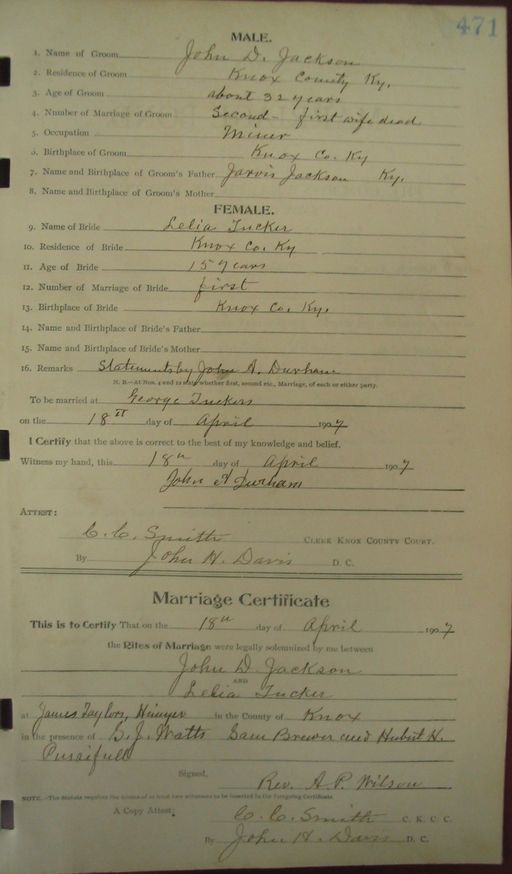 471
MALE.
1. Name of Groom John D. Jackson
2. Residence of Groom Knox County Ky.
3. Age of Groom about 32 years
4. Number of Marriage of Groom Second - first wife dead
5. Occupation Miner
6. Birthplace of Groom Knox Co. Ky
7. Name and Birthplace of Groom's Father Jarvis Jackson Ky.
8. Name and Birthplace of Groom's Mother
FEMALE.
9. Name of Bride Lelia Tucker
10. Residence of Bride Knox Co. Ky
11. Age of Bride 15 years
12. Number of Marriage of Bride first
13. Birthplace of Bride Knox Co. Ky.
14. Name and Birthplace of Bride's Father
15. Name and Birthplace of Bride's Mother
16. Remarks Statements by John A. Durham
N. B.—At Nos. 4 and 12 state whether first, second etc., Marriage, of each or either party.
To be married at George Tuckers
on the 18th day of April 1907
I Certify that the above is correct to the best of my knowledge and belief.
Witness my hand, this 18th day of April 1907
John A Durham
ATTEST:
C. C. Smith CLERK KNOX COUNTY COURT.
By John H. Davis D. C.
Marriage Certificate
This is to Certify That on the 18th day of April 1907
the Rites of Marriage were legally solemnized by me between
John D. Jackson
AND
Lelia Tucker
at James Taylors, Himyer in the County of Knox
in the presence of B. J. Watts Sam Brewer and Hubert H.
Pursifull
Signed, Rev. A. P. Wilson
NOTE.—The Statute requires the names of at least two witnesses to be inserted in the foregoing Certificate.
A Copy Attest: C. C. Smith C. K. C. C.
By John H. Davis D. C.